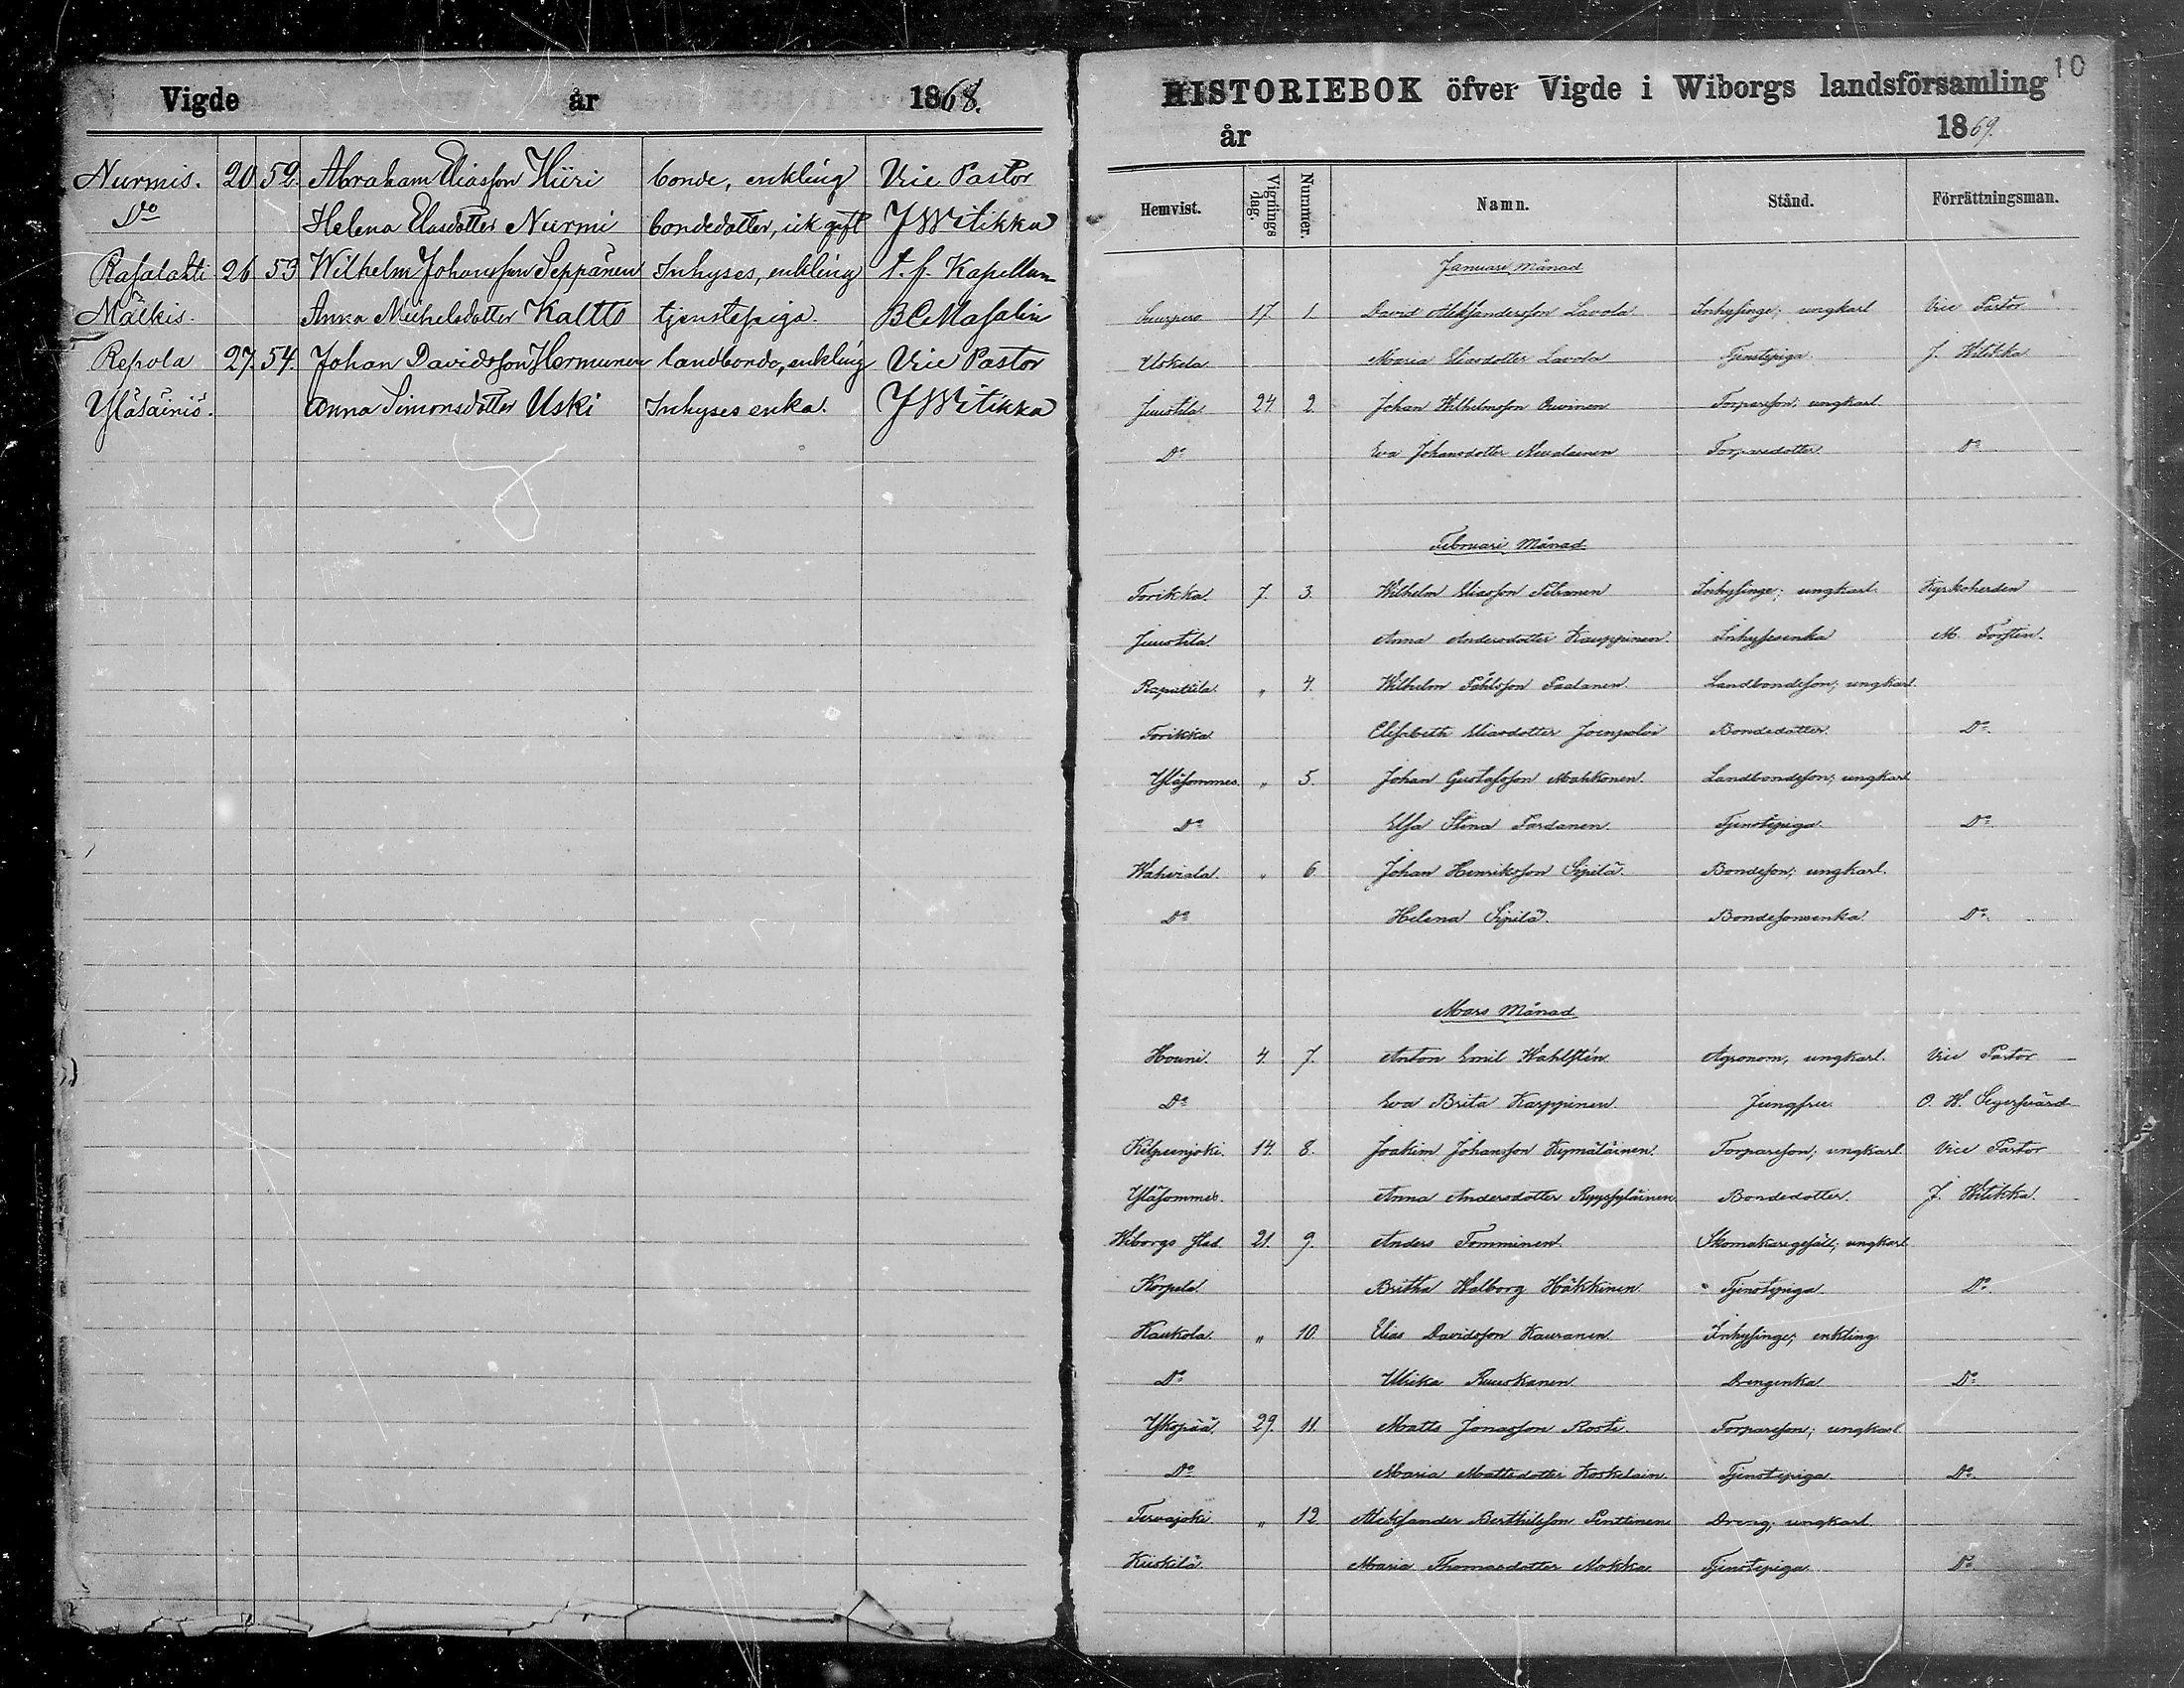 Vigde år 1868.
Nurmis. 20 52. Abraham Eliasson Hiiri bonde, enkling Vice Pastor
Do Helena Eliasdotter Nurmi bondedotter, ick gift J Witikka
Rasalahti 26 53 Wilhelm Johansson Seppänen Inhyses, enkling t. f. Kapellan
Mälkis. Anna Michelsdotter Kaltto tjenstepiga. B C Masalin
Repola 27. 54. Johan Davidsson Hermunen landbonde, enkling Vice Pastor
Yläsäiniö. Anna Simonsdotter Uski Inhyses enka. J Witikka
10
HISTORIEBOK öfver Vigde i Wiborgs landsförsamling
år 1869.
Hemvist. Vignings dag. Nummer. Namn. Stånd. Förrättningsman.
Januari Månad
Suurpero 17. 1. David Aleksandersson Lavola Inhysinge; ungkarl Vice Pastor
Uskela Maria Eliasdotter Lavola Tjenstepiga. J. Witikka
Juustila. 24. 2. Johan Wilhelmsson Orvinen Torpareson; ungkarl.
Do Eva Johansdotter Nevalainen Torparedotter. Do
Februari Månad
Torikka. 7. 3. Wilhelm Eliasson Silvonen Inhysinge; ungkarl. Kyrkoherden
Juustila. Anna Andersdotter Kauppinen. Inhysesenka M. Forstén.
Rapattila. " 4. Wilhelm Påhlsson Paalanen. Landbondeson; ungkarl.
Torikka. Elisabeth Eliasdotter Joenpolvi Bondedotter. Do.
Yläsommee. " 5. Johan Gustafsson Mahkonen. Landbondeson; ungkarl.
Do Ulja Stina Pardanen. Tjenstepiga. Do.
Wahviala. " 6. Johan Henriksson Sipilä. Bondeson; ungkarl.
Do Helena Sipilä. Bondesonsenka. Do.
Mars Månad
Houni. 4. 7. Anton Emil Wahlstén. Agronom, ungkarl. Vice Pastor
Do Eva Brita Karppinen. Jungfru. O. W. Segersvärd
Kilpeenjoki. 14. 8. Joakim Johansson Kymäläinen. Torpareson; ungkarl. Vice Pastor
Yläsommee. Anna Andersdotter Ryysyläinen. Bondedotter. J. Witikka.
Wiborgs stad. 21. 9. Anders Tomminen. Skomakaregesäll; ungkarl
Korpela. Britha Walborg Häkkinen. Tjenstepiga. Do.
Kaukola. " 10. Elias Davidsson Kauranen. Inhysinge; enkling.
Do Ulrika Ruuskanen. Drengenka. Do
Ykspää. 29. 11. Matts Jonasson Rosti. Torpareson; ungkarl.
Do Maria Mattsdotter Koskelain. Tjenstepiga. Do.
Tervajoki. " 12. Aleksander Berthilsson Penttinen Dreng; ungkarl.
Kiiskilä. Maria Thomasdotter Mokka. Tjenstepiga. Do